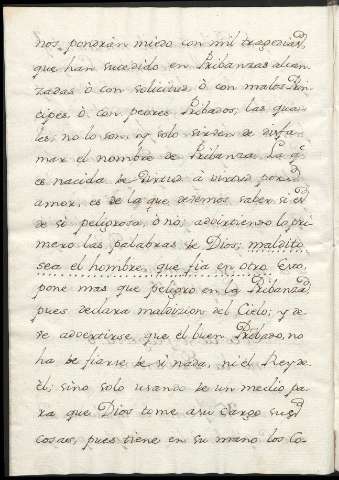 nos pondràn miedo con mil tragedias,
que han sucedido en Pribanzas alcan-
zadas ò con solicitud ò con malos Prin-
cipes, ò con peores Pribados, las qua-
les, no lo son, ny solo sirven de disfa-
mar el nombre de Pribanza. La q̃
es nacida de Virtud à virtud por el
amor, es de la que devemos saber si es
de si peligrosa, ò no; advirtiendo lo pri-
mero las palabras de Dios; maldito
sea el hombre, que fia en otro. Esto,
pone mas que peligro en la Pribanza,
pues declara maldizion del Cielo; y de-
ve advertirse, que el buen Pribado, no
ha de fiarse de si nada, ni el Rey de
èl; sino solo usando de un medio pa-
ra que Dios tome asu Cargo sus
cosas, pues tiene en su mano los Co-